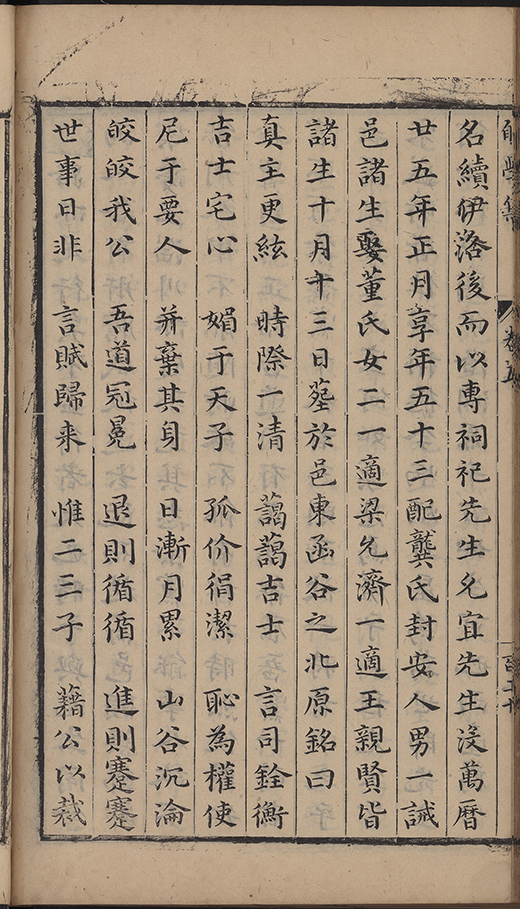 名續伊洛後而以專祠祀先生允宜先生沒萬曆
廿五年正月享年五十三配龔氏封安人男一誠
邑諸生娶董氏女二一適梁允濟一適王親賢皆
諸生十月十三日塟於邑東函谷之北原銘曰
真主更絃 時際一清 藹藹吉士 言司銓衡
吉士宅心 媚于天子 孤价狷潔 恥為權使
尼于要人 并棄其身 日漸月累 山谷沉淪
皎皎我公 吾道冠冕 退則循循 進則蹇蹇
世事日非 言賦歸来 惟二三子 藉公以裁